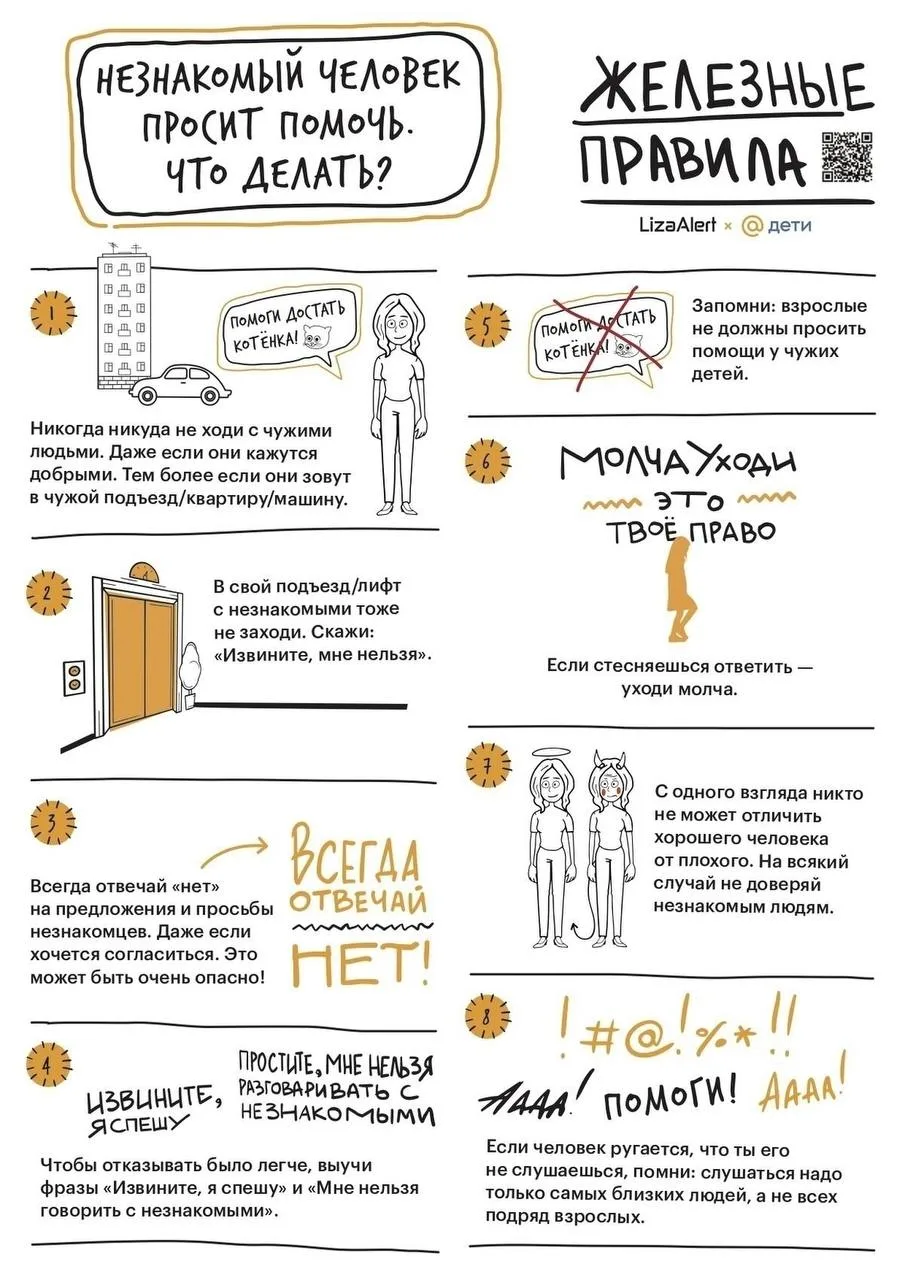 НЕЗНАКОМЫЙ ЧЕЛОВЕК
ПРОСИТ ПОМОЧЬ.
ЧТО ДЕЛАТЬ?
ЖЕЛЕЗНЫЕ
ПРАВИЛА
LizaAlert × @ дети
1
ПОМОГИ ДОСТАТЬ
КОТЁНКА!
Никогда никуда не ходи с чужими
людьми. Даже если они кажутся
добрыми. Тем более если они зовут
в чужой подъезд/квартиру/машину.
2
В свой подъезд/лифт
с незнакомыми тоже
не заходи. Скажи:
«Извините, мне нельзя».
3
Всегда отвечай «нет»
на предложения и просьбы
незнакомцев. Даже если
хочется согласиться. Это
может быть очень опасно!
ВСЕГДА
ОТВЕЧАЙ
НЕТ!
4
ИЗВИНИТЕ,
Я СПЕШУ
ПРОСТИТЕ, МНЕ НЕЛЬЗЯ
РАЗГОВАРИВАТЬ С
НЕЗНАКОМЫМИ
Чтобы отказывать было легче, выучи
фразы «Извините, я спешу» и «Мне нельзя
говорить с незнакомыми».
5
ПОМОГИ ДОСТАТЬ
КОТЁНКА!
Запомни: взрослые
не должны просить
помощи у чужих
детей.
6
МОЛЧА УХОДИ
ЭТО
ТВОЁ ПРАВО
Если стесняешься ответить —
уходи молча.
7
С одного взгляда никто
не может отличить
хорошего человека
от плохого. На всякий
случай не доверяй
незнакомым людям.
8
!#@!%*!!
АААА! ПОМОГИ! АААА!
Если человек ругается, что ты его
не слушаешься, помни: слушаться надо
только самых близких людей, а не всех
подряд взрослых.